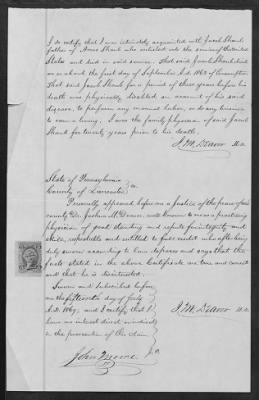 I do certify that I was intimately acquainted with Jacob Shank
father of Amos Shank who enlisted into the service of the United
States and died in said service. That said Jacob Shank died
on or about the first day of September A.D. 1863 of Consumption
That said Jacob Shank for a period of three years before his
death was physically disabled on account of his said
disease, to perform any manual labor, or do any business
to earn a living. I was the family physician of said Jacob
Shank for twenty years prior to his death.
J. M. Deaver M.D.
State of Pennsylvania
County of Lancaster ss.
Personally appeared before me a Justice of the peace of said
county Dr. Joshua M. Deaver, well known to me as a practising
physician of good standing and repute for integrity and
skill, respectable and entitled to full credit who after being
duly sworn according to law deposes and says that the
facts stated in the above Certificate are true and correct
and that he is disinterested.
Sworn and subscribed before
me the fifteenth day of July
A.D. 1867, and I certify that I
have no interest direct or indirect
in the prosecution of this claim
J. M. Deaver M.D.
John J.P.